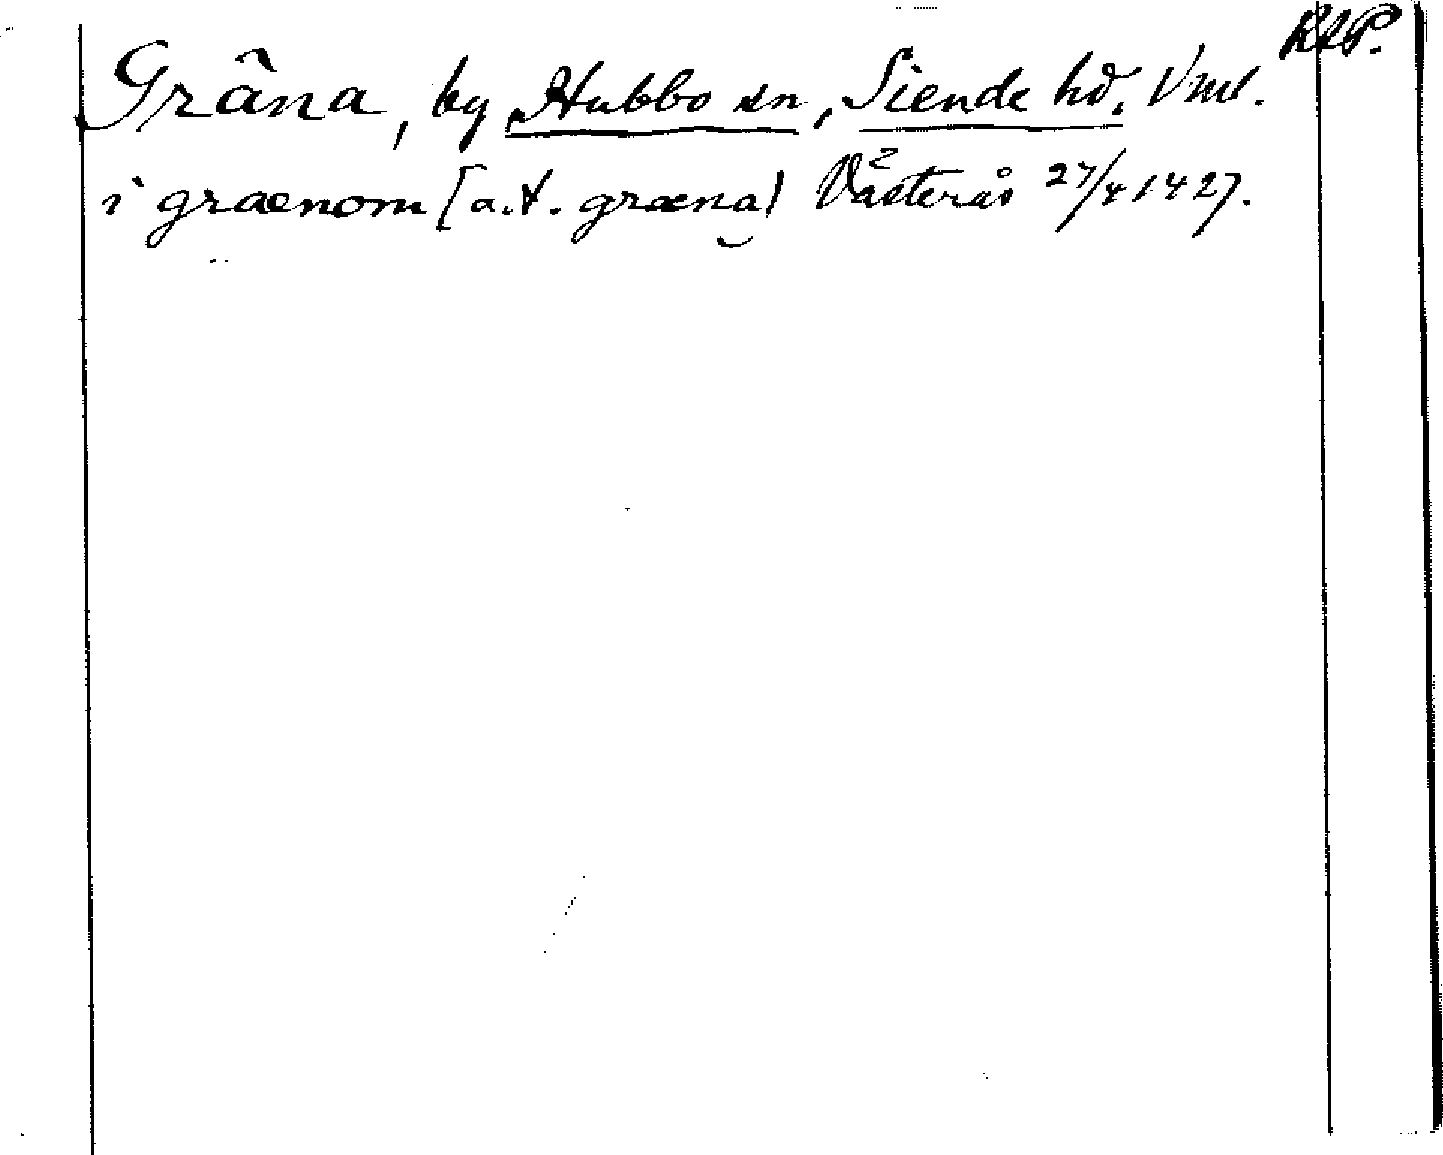 RAP.
Gräna, by Hubbo sn, Siende hd, Vml.
i grænom [a.t. græna] Västerås 27/4 1427.